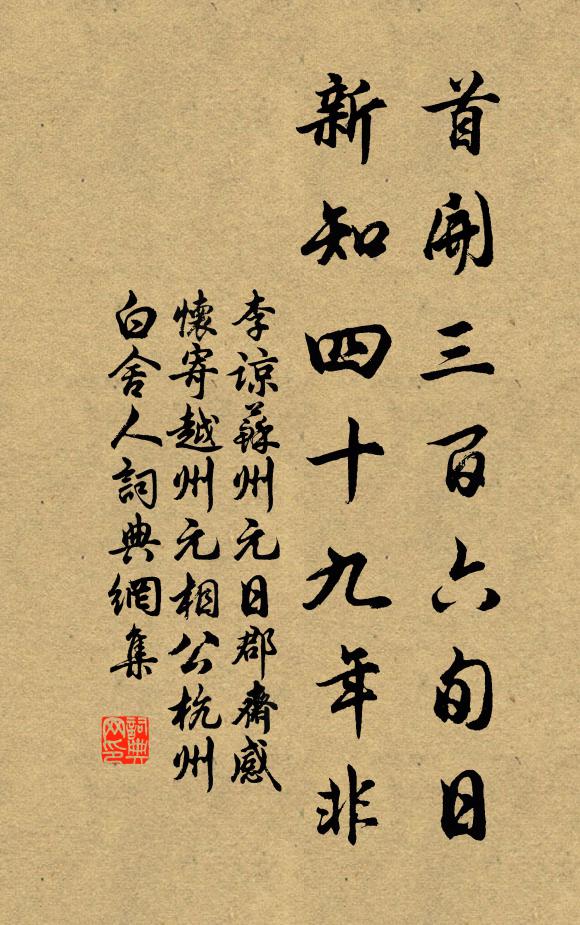 首開三百六旬日
新知四十九年非
李諒蘇州元日郡齋感
懷寄越州元相公杭州
白舍人詞典網集
詞典
网印